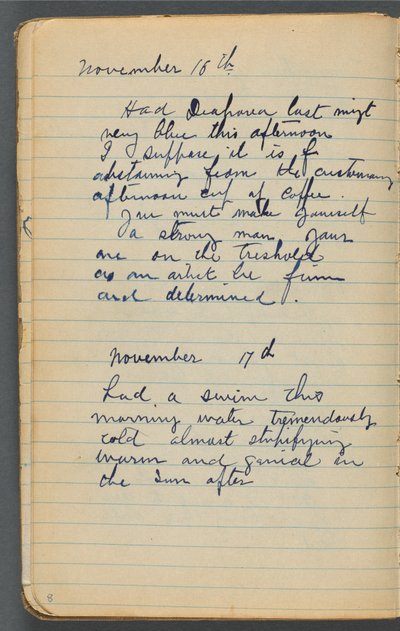 November 16th
Had Diaforea last night
very blue this afternoon
I suppose it is f
abstaining from the customary
afternoon cup of coffee.
You must make yourself
a strong man. Your
are on the treshold
as an artist be firm
and determined.
November 17th
had a swim this
morning water tremendously
cold almost stupifying
warm and genial in
the sun after
8